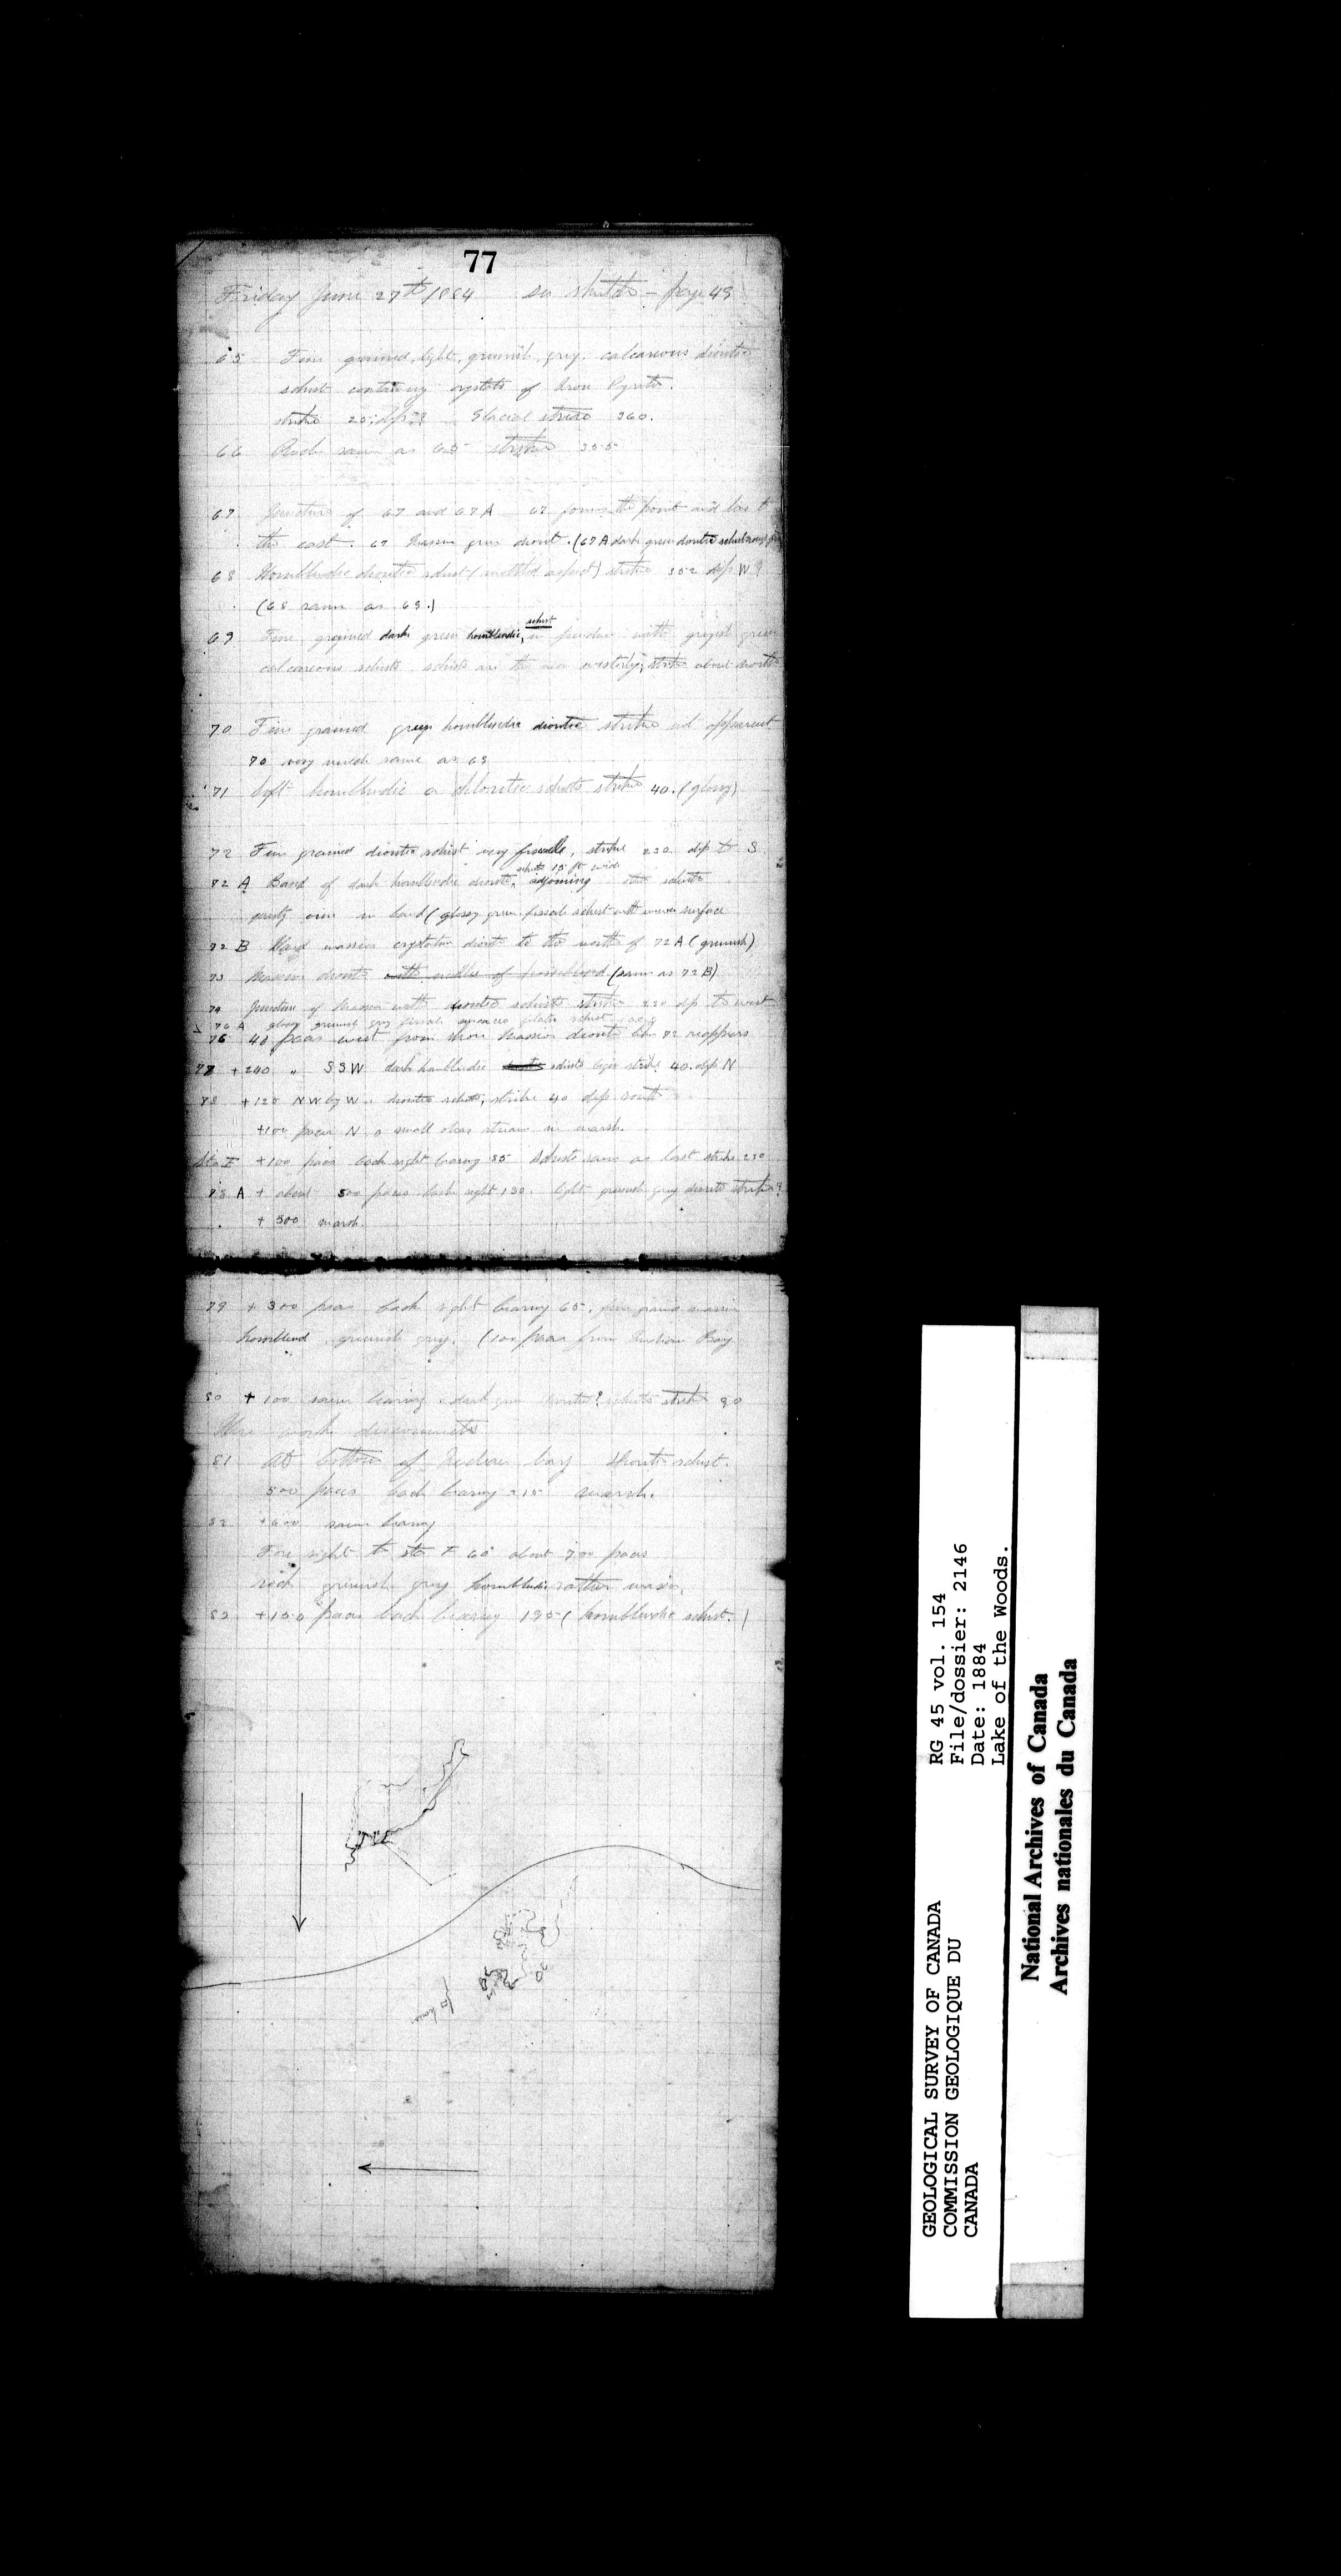 77
Friday June 27th 1884 see sketch - page 49
65 Fine grained, light, greenish, grey, calcareous diorite
schist containing crystals of Iron Pyrites.
strike 25; dip ? Glacial striae 360.
66 Rock same as 65 strike 355
67 Juncture of 67 and 67A 67 forms the point and lies to
the east. 67 Massive green diorite. (67A dark green diorite schist
68 Hornblendic diorite schist (mottled aspect) strike 352 dip W?
(68 same as 69.)
69 Fine grained dark green hornblendic, schist in juncture with greyish green
calcareous schists schists are the westerly; strike about north
70 Fine grained green hornblendic diorite strike not apparent
70 very much same as 69
71 Soft hornblendic or chloritic schists strike 40. (glossy)
72 Fine grained diorite schist very fissile, strike 230 dip to S
schists 15 ft wide
82 A Band of dark hornblendic diorite, adjoining schists
in band (glossy green fissile schist with uneven surface
72 B Hard massive crystalline diorite to the north of 72A (greenish)
73 Massive diorite with needles of hornblend (same as 72B)
74 Juncture of Massive with diorite schists strike 230 dip to west
76 A glossy greenish grey fissile schist
76 40 paces west from shore Massive diorite like 72 reappears
77 +240 " SSW dark hornblendic schists begin strike 40. dip N
78 +120 NW by W. diorite schists, strike 40 dip south
+100 paces N a small clear stream in marsh.
Sta F +100 paces back sight bearing 85 Schists same as last strike 230
78 A + about 500 paces back sight 130. light greenish grey diorite strike?
+ 500 marsh.
79 + 300 paces back sight bearing 65. fine grained massive
hornblend greenish grey. (100 paces from Indian Bay
80 + 100 same bearing dark green diorite? schists strike 90
Here work disconnects
81 At bottom of Indian bay diorite schist.
500 paces back bearing 215 marsh.
82 +600 same bearing
Fore sight to sta F 60 about 700 paces
rock greenish grey hornblendic rather massive.
83 +150 paces back bearing 195 (hornblendic schist.)
GEOLOGICAL SURVEY OF CANADA
COMMISSION GEOLOGIQUE DU
CANADA
RG 45 vol. 154
File/dossier: 2146
Date: 1884
Lake of the Woods.
National Archives of Canada
Archives nationales du Canada